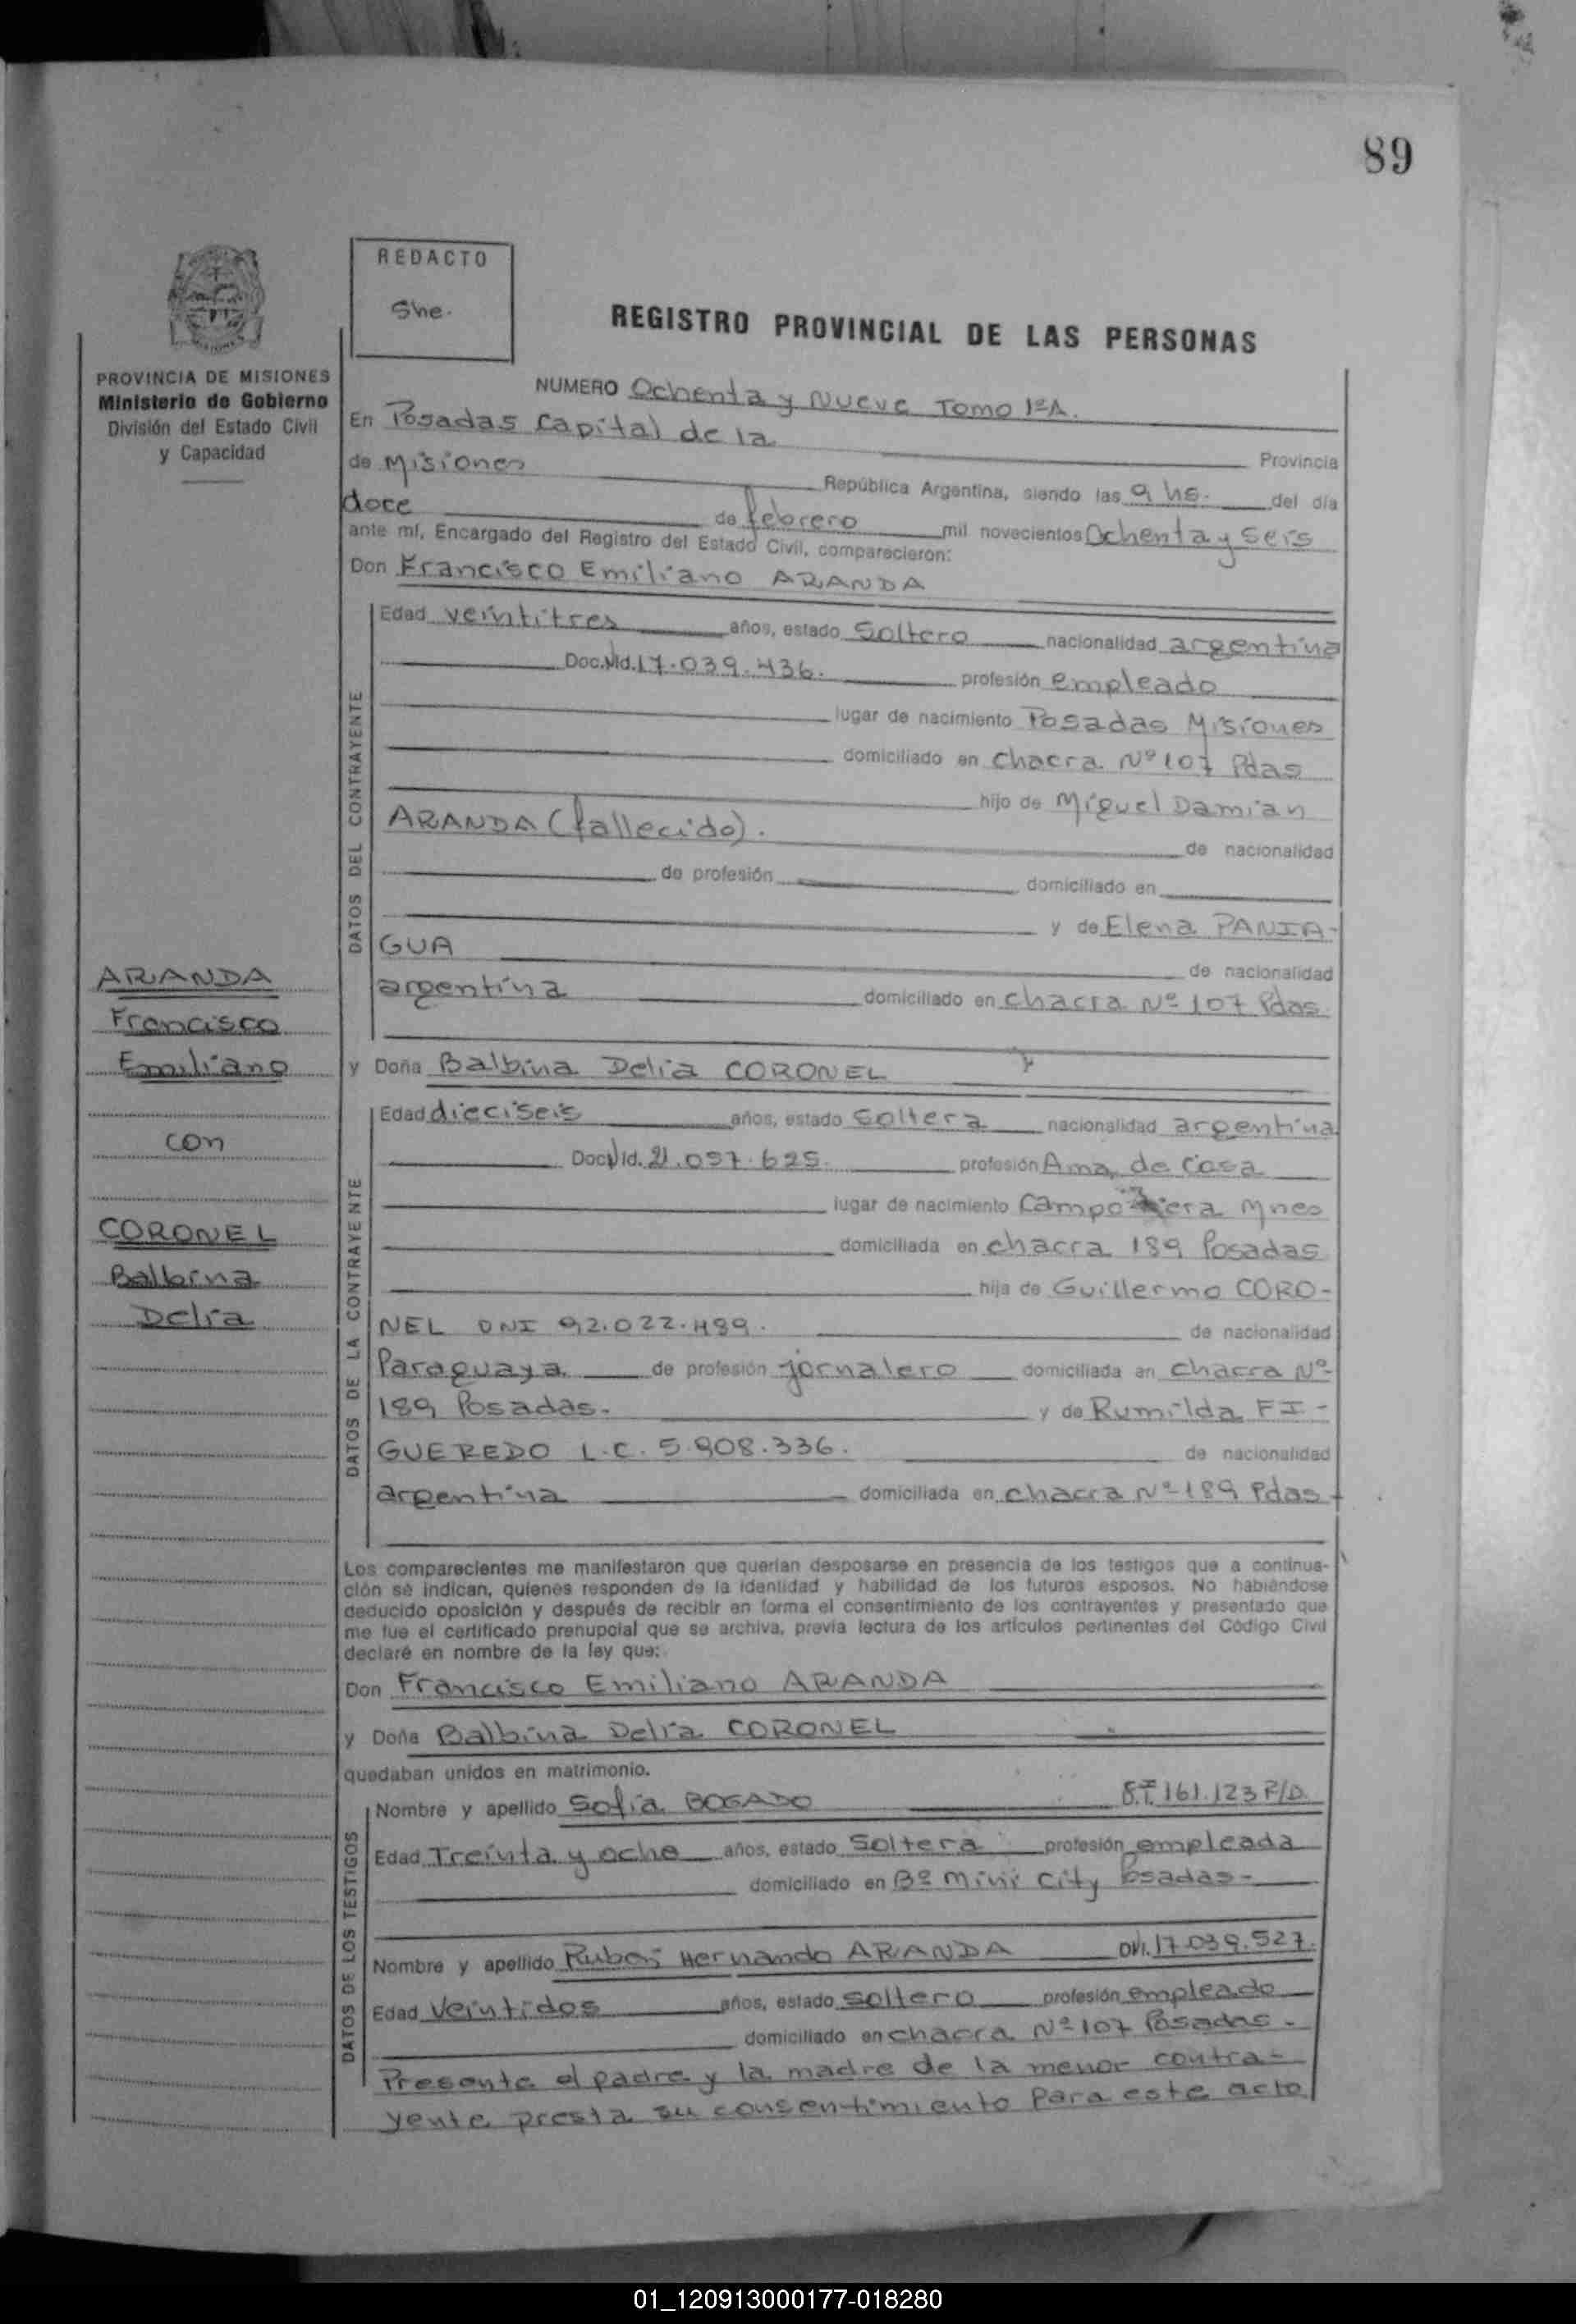 89
REDACTO
She.
REGISTRO PROVINCIAL DE LAS PERSONAS
PROVINCIA DE MISIONES
Ministerio de Gobierno
División del Estado Civil
y Capacidad
NUMERO Ochenta y Nueve Tomo 1ºA.
En Posadas Capital de la Provincia
de Misiones República Argentina, siendo las 9 hs. del día
doce de febrero mil novecientos Ochenta y Seis
ante mí, Encargado del Registro del Estado Civil, comparecieron:
Don Francisco Emiliano ARANDA
DATOS DEL CONTRAYENTE
Edad veintitres años, estado Soltero nacionalidad argentina
Doc. Nid. 17.039.436. profesión empleado
lugar de nacimiento Posadas Misiones
domiciliado en Chacra Nº 107 Pdas
hijo de Miguel Damian
ARANDA (fallecido). de nacionalidad
de profesión domiciliado en
y de Elena PANIA-
GUA de nacionalidad
argentina domiciliado en Chacra Nº 107 Pdas.
ARANDA
Francisco
Emiliano
con
CORONEL
Balbina
Delia
y Doña Balbina Delia CORONEL
DATOS DE LA CONTRAYENTE
Edad dieciseis años, estado Soltera nacionalidad argentina
Doc. Nid. 21.057.625. profesión Ama de Casa
lugar de nacimiento Campo Viera Mnes
domiciliada en chacra 189 Posadas
hija de Guillermo CORO-
NEL DNI 92.022.489. de nacionalidad
Paraguaya de profesión jornalero domiciliada en chacra Nº
189 Posadas. y de Rumilda FI-
GUEREDO L.C. 5.908.336. de nacionalidad
argentina domiciliada en chacra Nº 189 Pdas
Los comparecientes me manifestaron que querían desposarse en presencia de los testigos que a continua-
ción se indican, quienes responden de la identidad y habilidad de los futuros esposos. No habiéndose
deducido oposición y después de recibir en forma el consentimiento de los contrayentes y presentado que
me fue el certificado prenupcial que se archiva, previa lectura de los artículos pertinentes del Código Civil
declaré en nombre de la ley que:
Don Francisco Emiliano ARANDA
y Doña Balbina Delia CORONEL
quedaban unidos en matrimonio.
DATOS DE LOS TESTIGOS
Nombre y apellido Sofia BOGADO 161.123 P/D.
Edad Treinta y ocho años, estado Soltera profesión empleada
domiciliado en Bº Mini City Posadas-
Nombre y apellido Hernando ARANDA DNI. 17.039.527.
Edad Veintidos años, estado soltero profesión empleado
domiciliado en chacra Nº 107 Posadas.
Presente el padre y la madre de la menor contra-
yente presta su consentimiento para este acto
01_120913000177-018280